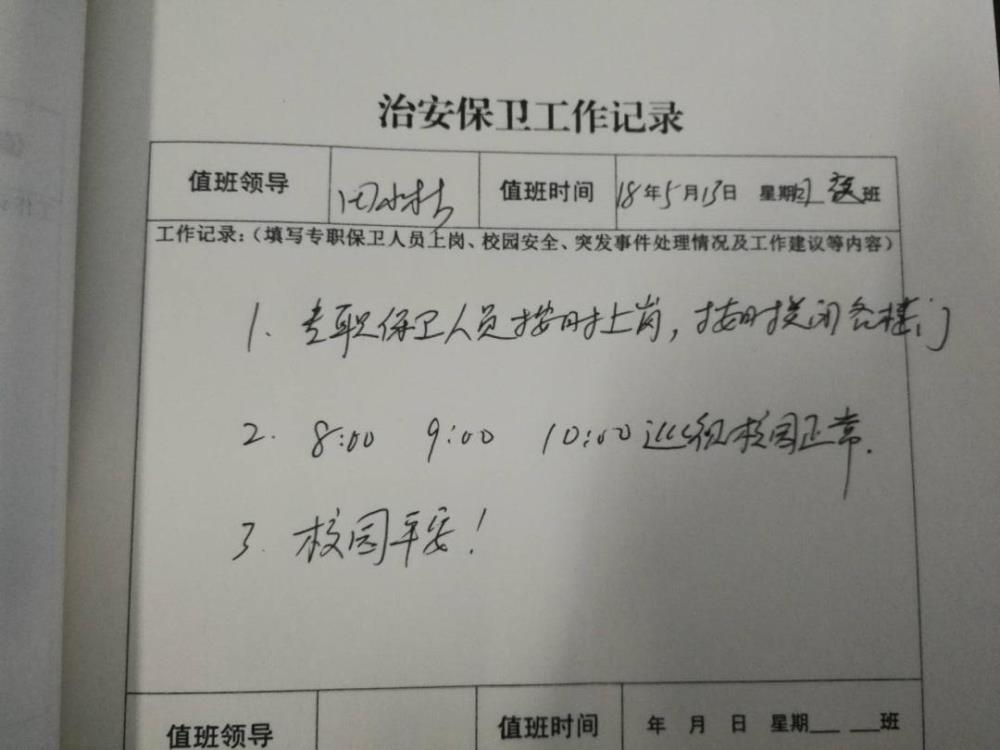 治安保卫工作记录
值班领导 田水林 值班时间 18年5月13日 星期日 夜班
工作记录:(填写专职保卫人员上岗、校园安全、突发事件处理情况及工作建议等内容)
1. 专职保卫人员按时上岗,按时关闭各楼门
2. 8:00 9:00 10:00 巡视校园正常.
3. 校园平安!
值班领导 值班时间 年 月 日 星期__ __班